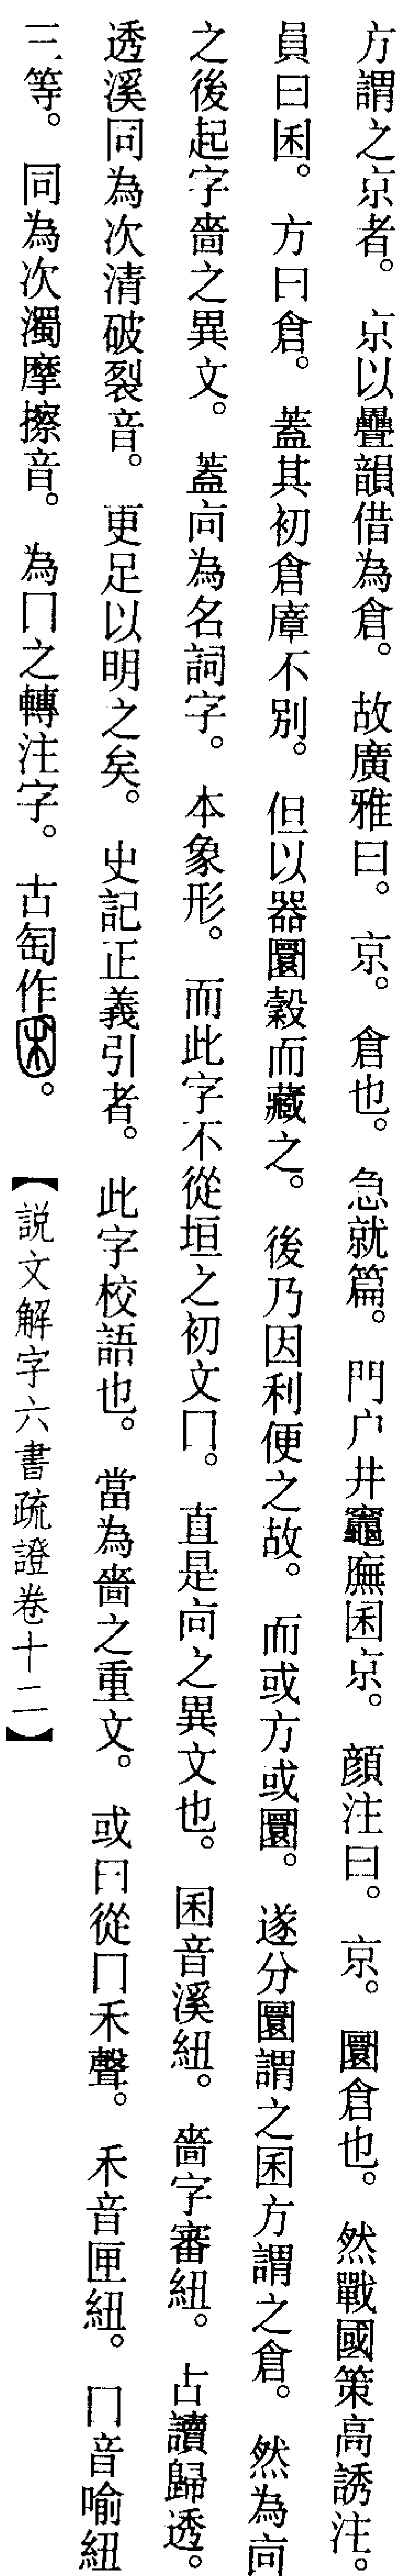 方謂之京者。京以疊韻借為倉。故廣雅曰。京。倉也。急就篇。門户井竈廡囷京。顏注曰。京。圜倉也。然戰國策高誘注。
員曰囷。方曰倉。蓋其初倉廩不別。但以器圜穀而藏之。後乃因利便之故。而或方或圜。遂分圜謂之囷方謂之倉。然為㐭
之後起字嗇之異文。蓋㐭為名詞字。本象形。而此字不從垣之初文冂。直是㐭之異文也。囷音溪紐。嗇字審紐。古讀歸透。
透溪同為次清破裂音。更足以明之矣。史記正義引者。此字校語也。當為嗇之重文。或曰從冂禾聲。禾音匣紐。冂音喻紐
三等。同為次濁摩擦音。為冂之轉注字。古匋作。【説文解字六書疏證卷十二】